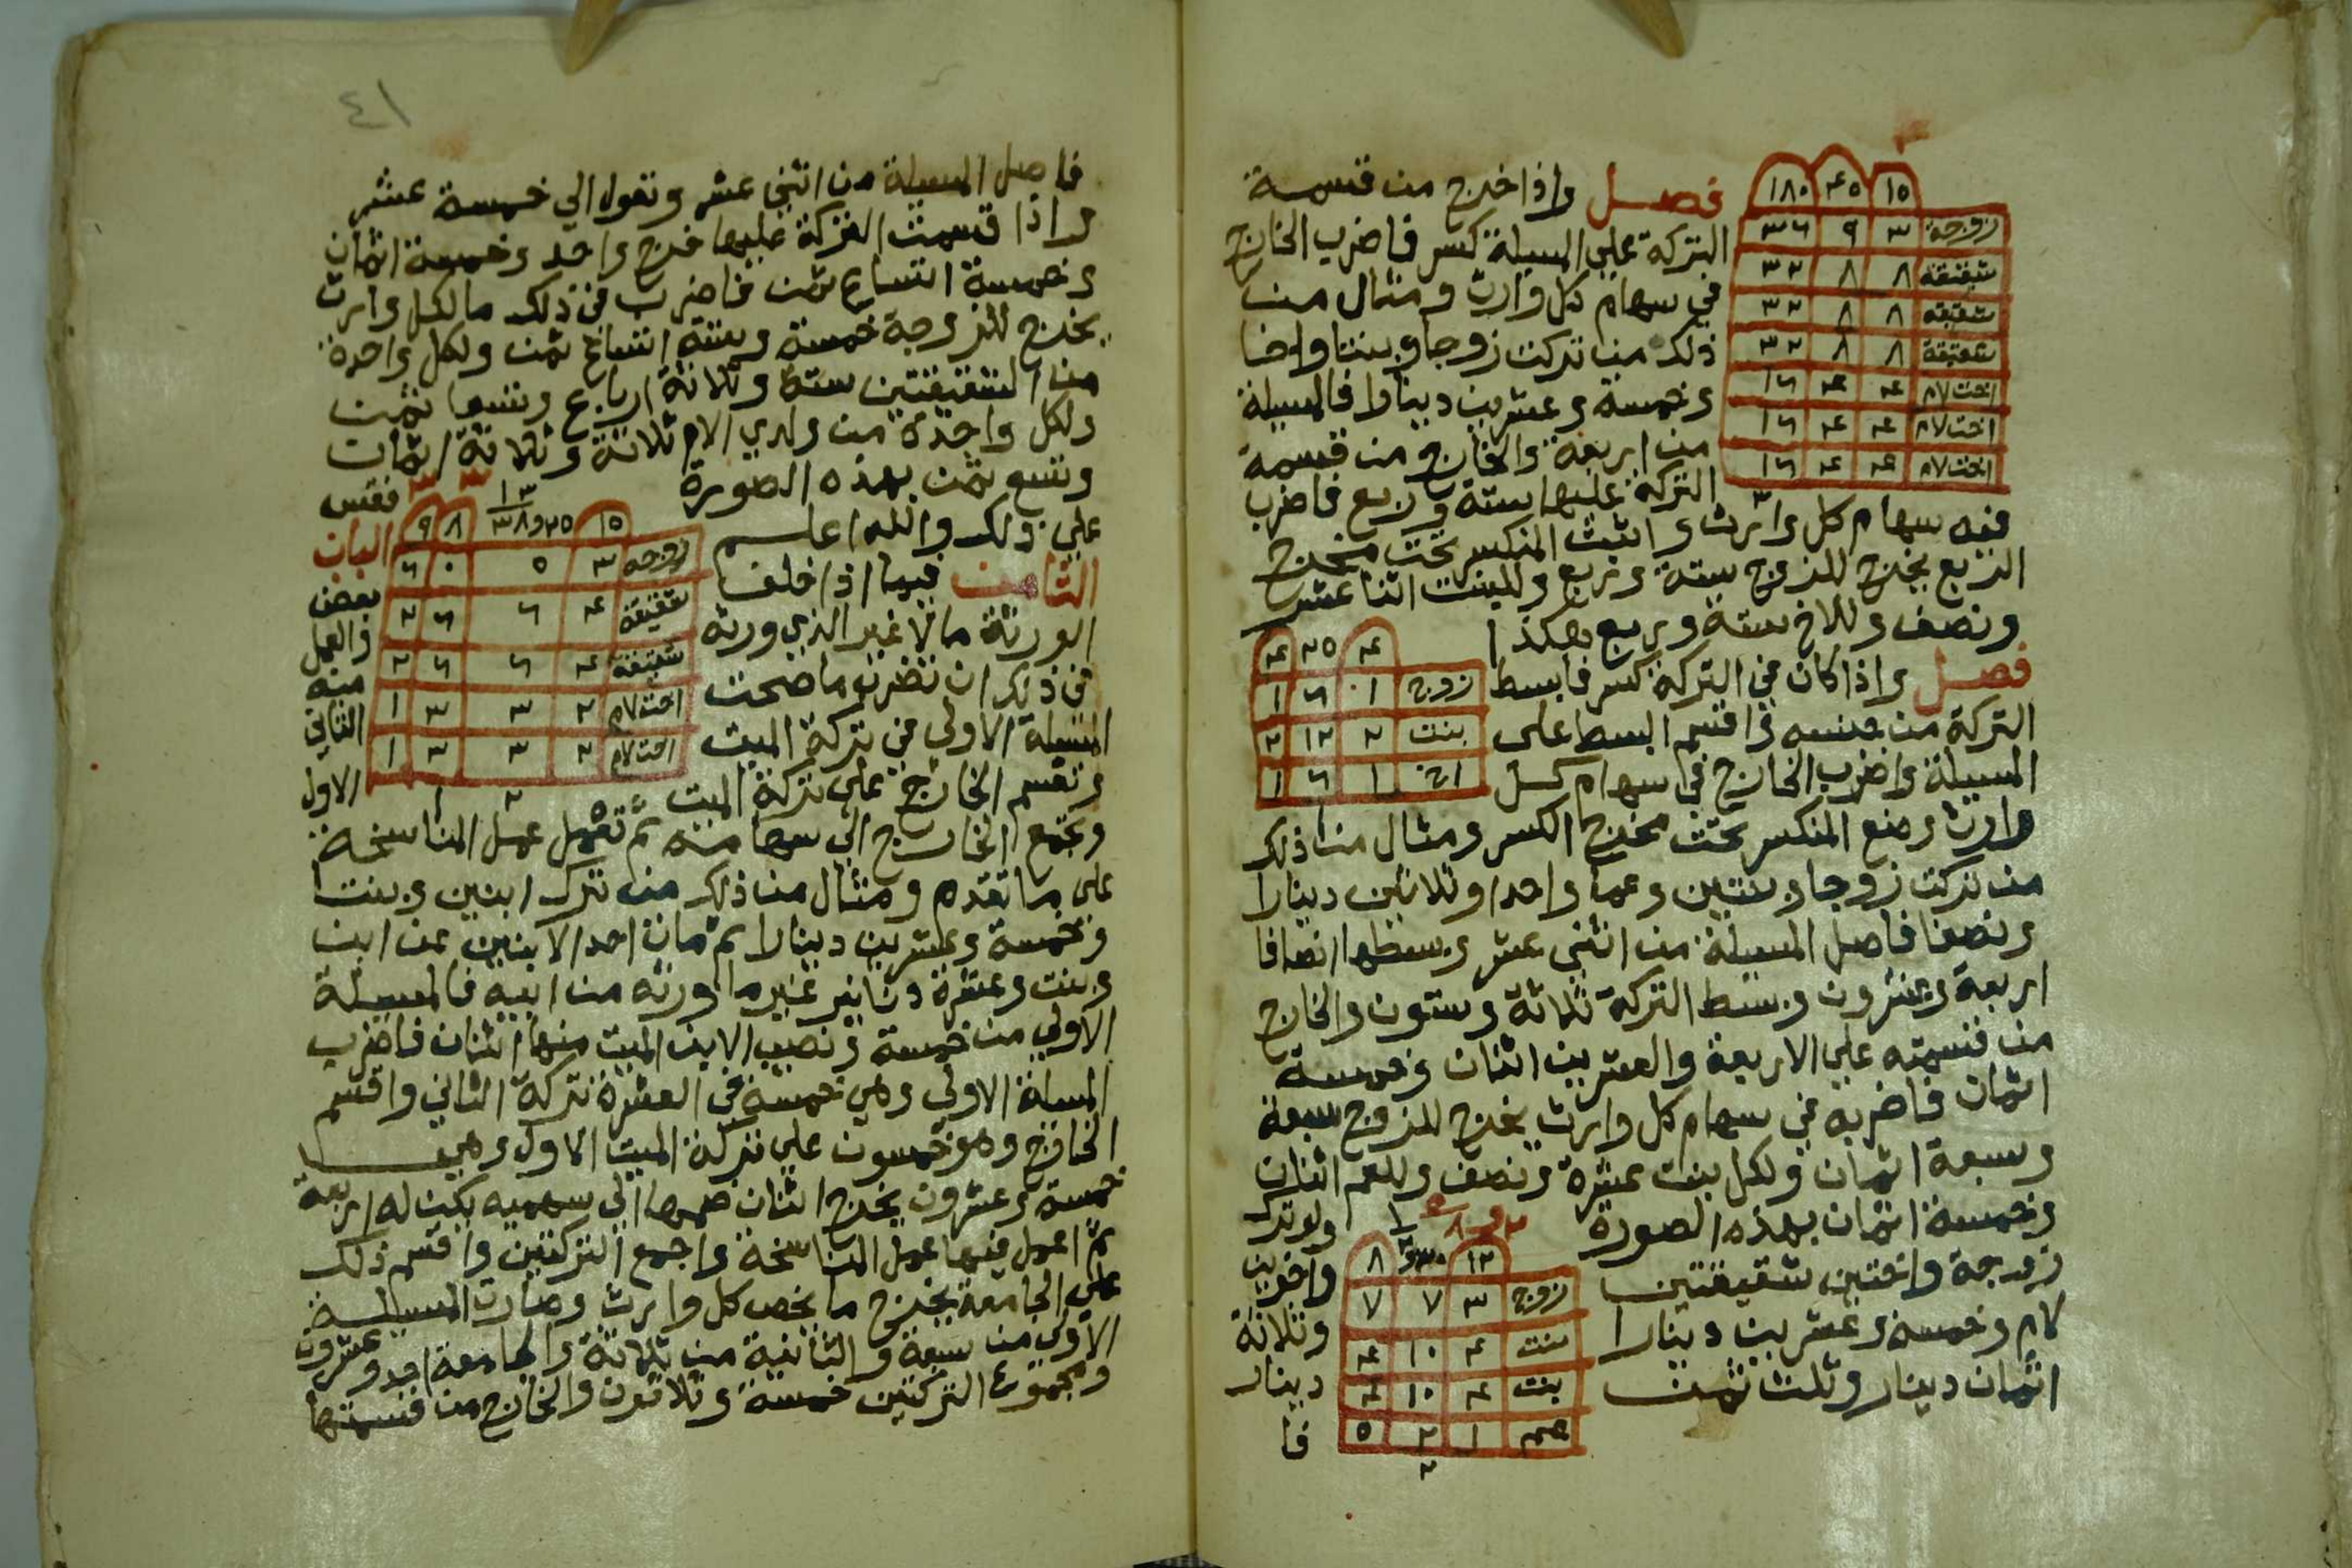 ١٥ ٤٥ ١٨٠
زوجة ٣ ٩ ٣٦
شقيقة ٨ ٨ ٣٢
شقيقة ٨ ٨ ٣٢
شقيقة ٨ ٨ ٣٢
اخت لام ٤ ٤ ١٦
اخت لام ٤ ٤ ١٦
اخت لام ٤ ٤ ١٦
فصل واذا خرج من قسمة
التركة علي المسيلة كسر فاضرب الخارج
في سهام كل وارث ومثال من
ذلك من تركت زوجا وبنتا واخا
وخمسة وعشرين دينارا فالمسيلة
من اربعة والخارج من قسمة
التركة عليها ستة وربع فاضرب
فيه سهام كل وارث واثبت المنكسر تحت مخرج
الربع يخرج للزوج ستة وربع وللبنت اثنا عشر
ونصف وللاخ ستة وربع هكذا
٤ ٢٥ ٤
زوج ١ ٦ ١
بنت ٢ ١٢ ٢
اخ ١ ٦ ١
فصل واذا كان في التركة كسر فابسط
التركة من جنسه واقسم البسط على
المسيلة واضرب الخارج في سهام كل
وارث وضع المنكسر تحت مخرج الكسر ومثال من ذلك
من تركت زوجا وبنتين وعما واحدا وثلاثين دينارا
ونصفا فاصل المسيلة من اثني عشر وبسطها انصافا
اربعة وعشرون وبسط التركة ثلاثة وستون والخارج
من قسمته علي الاربعة والعشرين اثنان وخمسة
اثمان فاضربه في سهام كل وارث يخرج للزوج سبعة
وسبعة اثمان ولكل بنت عشرة ونصف وللعم اثنان
وخمسة اثمان بهذه الصورة ولو ترك
زوجة واختين شقيقتين واخوين
لام وخمسة وعشرين دينارا وثلاثة
اثمان دينار وثلث ثمن دينار
فا
زوج ٣ ٧ ٧
بنت ٤ ١٠ ٤
بنت ٤ ١٠ ٤
عم ١ ٢ ٥
٤١
فاصل المسيلة من اثني عشر وتعول الي خمسة عشر
واذا قسمت التركة عليها خرج واحد وخمسة اثمان
وخمسة اتساع ثمن فاضرب في ذلك ما لكل وارث
يخرج للزوجة خمسة وستة اتساع ثمن ولكل واحدة
من الشقيقتين ستة وثلاثة ارباع وتسعا ثمن
ولكل واحدة من ولدي الام ثلاثة وثلاثة اثمان
وتسع ثمن بهذه الصورة فقس
علي ذلك والله اعلم الباب
الثامن فيما اذا خلف بعض
الورثة مالا غير الذي ورثه والعمل
في ذلك ان تضرب ما صحت منه
المسيلة الاولى في تركة الميت الثاني
وتقسم الخارج على تركة الميت الاول
١٥
زوجه ٣ ٥ ٠ ٦
شقيقة ٤ ٦ ٦ ٢
شقيقة ٤ ٦ ٦ ٢
اخت لام ٢ ٣ ٣ ١
اخت لام ٢ ٣ ٣ ١
وتجمع الخارج الي سهامه ثم تعمل عمل المناسخة
على ما تقدم ومثال من ذلك من ترك ابنين وبنت
وخمسة وعشرين دينارا ثم مات احد الابنين عن ابن
وبنت وعشرة دنانير غير ما ورثه من ابيه فالمسيلة
الاولي من خمسة ونصيب الابن الميت منها اثنان فاضرب
المسلة الاولي وهي خمسة في العشرة تركة الثاني واقسم
الخارج وهو خمسون علي تركة الميت الاول وهي
خمسة وعشرون يخرج اثنان ضمها الي سهميه يكن له اربعة
ثم اعمل فيها عمل المناسخة واجمع التركتين واقسم ذلك
علي الجامعة يخرج ما يخص كل وارث وصارت المسيلة
الاولي من سبعة والثانية من ثلاثة والجامعة احد وعشرون
ومجموع التركتين خمسة وثلاثون والخارج من قسمتها